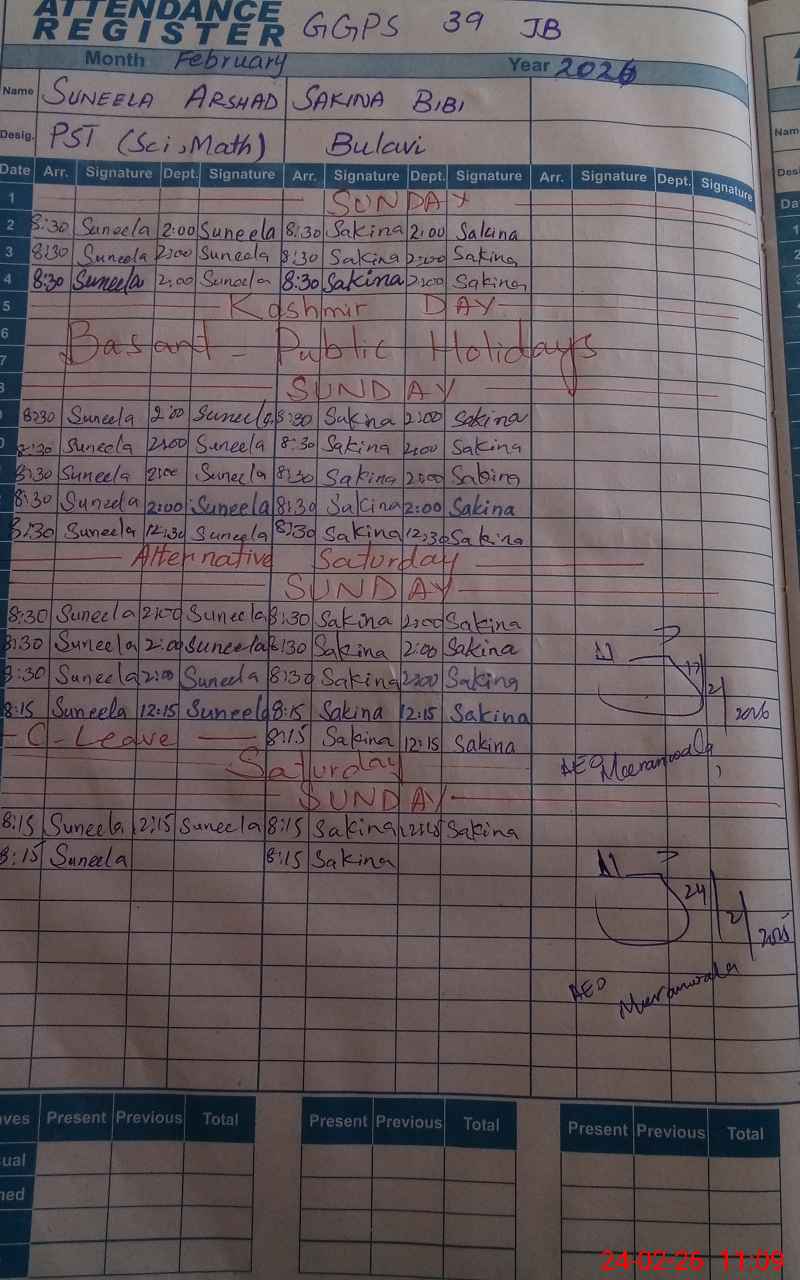 ATTENDANCE
REGISTER GGPS 39 JB
Month February Year 2026
Name SUNEELA ARSHAD SAKINA BIBI
Desig. PST (Sci, Math) Bulavi
Date Arr. Signature Dept. Signature Arr. Signature Dept. Signature Arr. Signature Dept. Signature
1 SUNDAY
2 8:30 Suneela 2:00 Suneela 8:30 Sakina 2:00 Sakina
3 8:30 Suneela 2:00 Suneela 8:30 Sakina 2:00 Sakina
4 8:30 Suneela 2:00 Suneela 8:30 Sakina 2:00 Sakina
5 Kashmir DAY
6 Basant - Public Holidays
7
8 SUNDAY
8:30 Suneela 2:00 Suneela 8:30 Sakina 2:00 Sakina
8:30 Suneela 2:00 Suneela 8:30 Sakina 2:00 Sakina
8:30 Suneela 2:00 Suneela 8:30 Sakina 2:00 Sakina
8:30 Suneela 2:00 Suneela 8:30 Sakina 2:00 Sakina
8:30 Suneela 12:30 Suneela 8:30 Sakina 12:30 Sakina
Alternative Saturday
SUNDAY
8:30 Suneela 2:00 Suneela 8:30 Sakina 2:00 Sakina
8:30 Suneela 2:00 Suneela 8:30 Sakina 2:00 Sakina
8:30 Suneela 2:00 Suneela 8:30 Sakina 2:00 Sakina
17/2/2026
8:15 Suneela 12:15 Suneela 8:15 Sakina 12:15 Sakina
C-Leave 8:15 Sakina 12:15 Sakina
AEO Meeranwala
Saturday
SUNDAY
8:15 Suneela 12:15 Suneela 8:15 Sakina 12:15 Sakina
8:15 Suneela 8:15 Sakina
24/2/2025
AEO Meeranwala
Present Previous Total Present Previous Total Present Previous Total
24-02-26 11:09